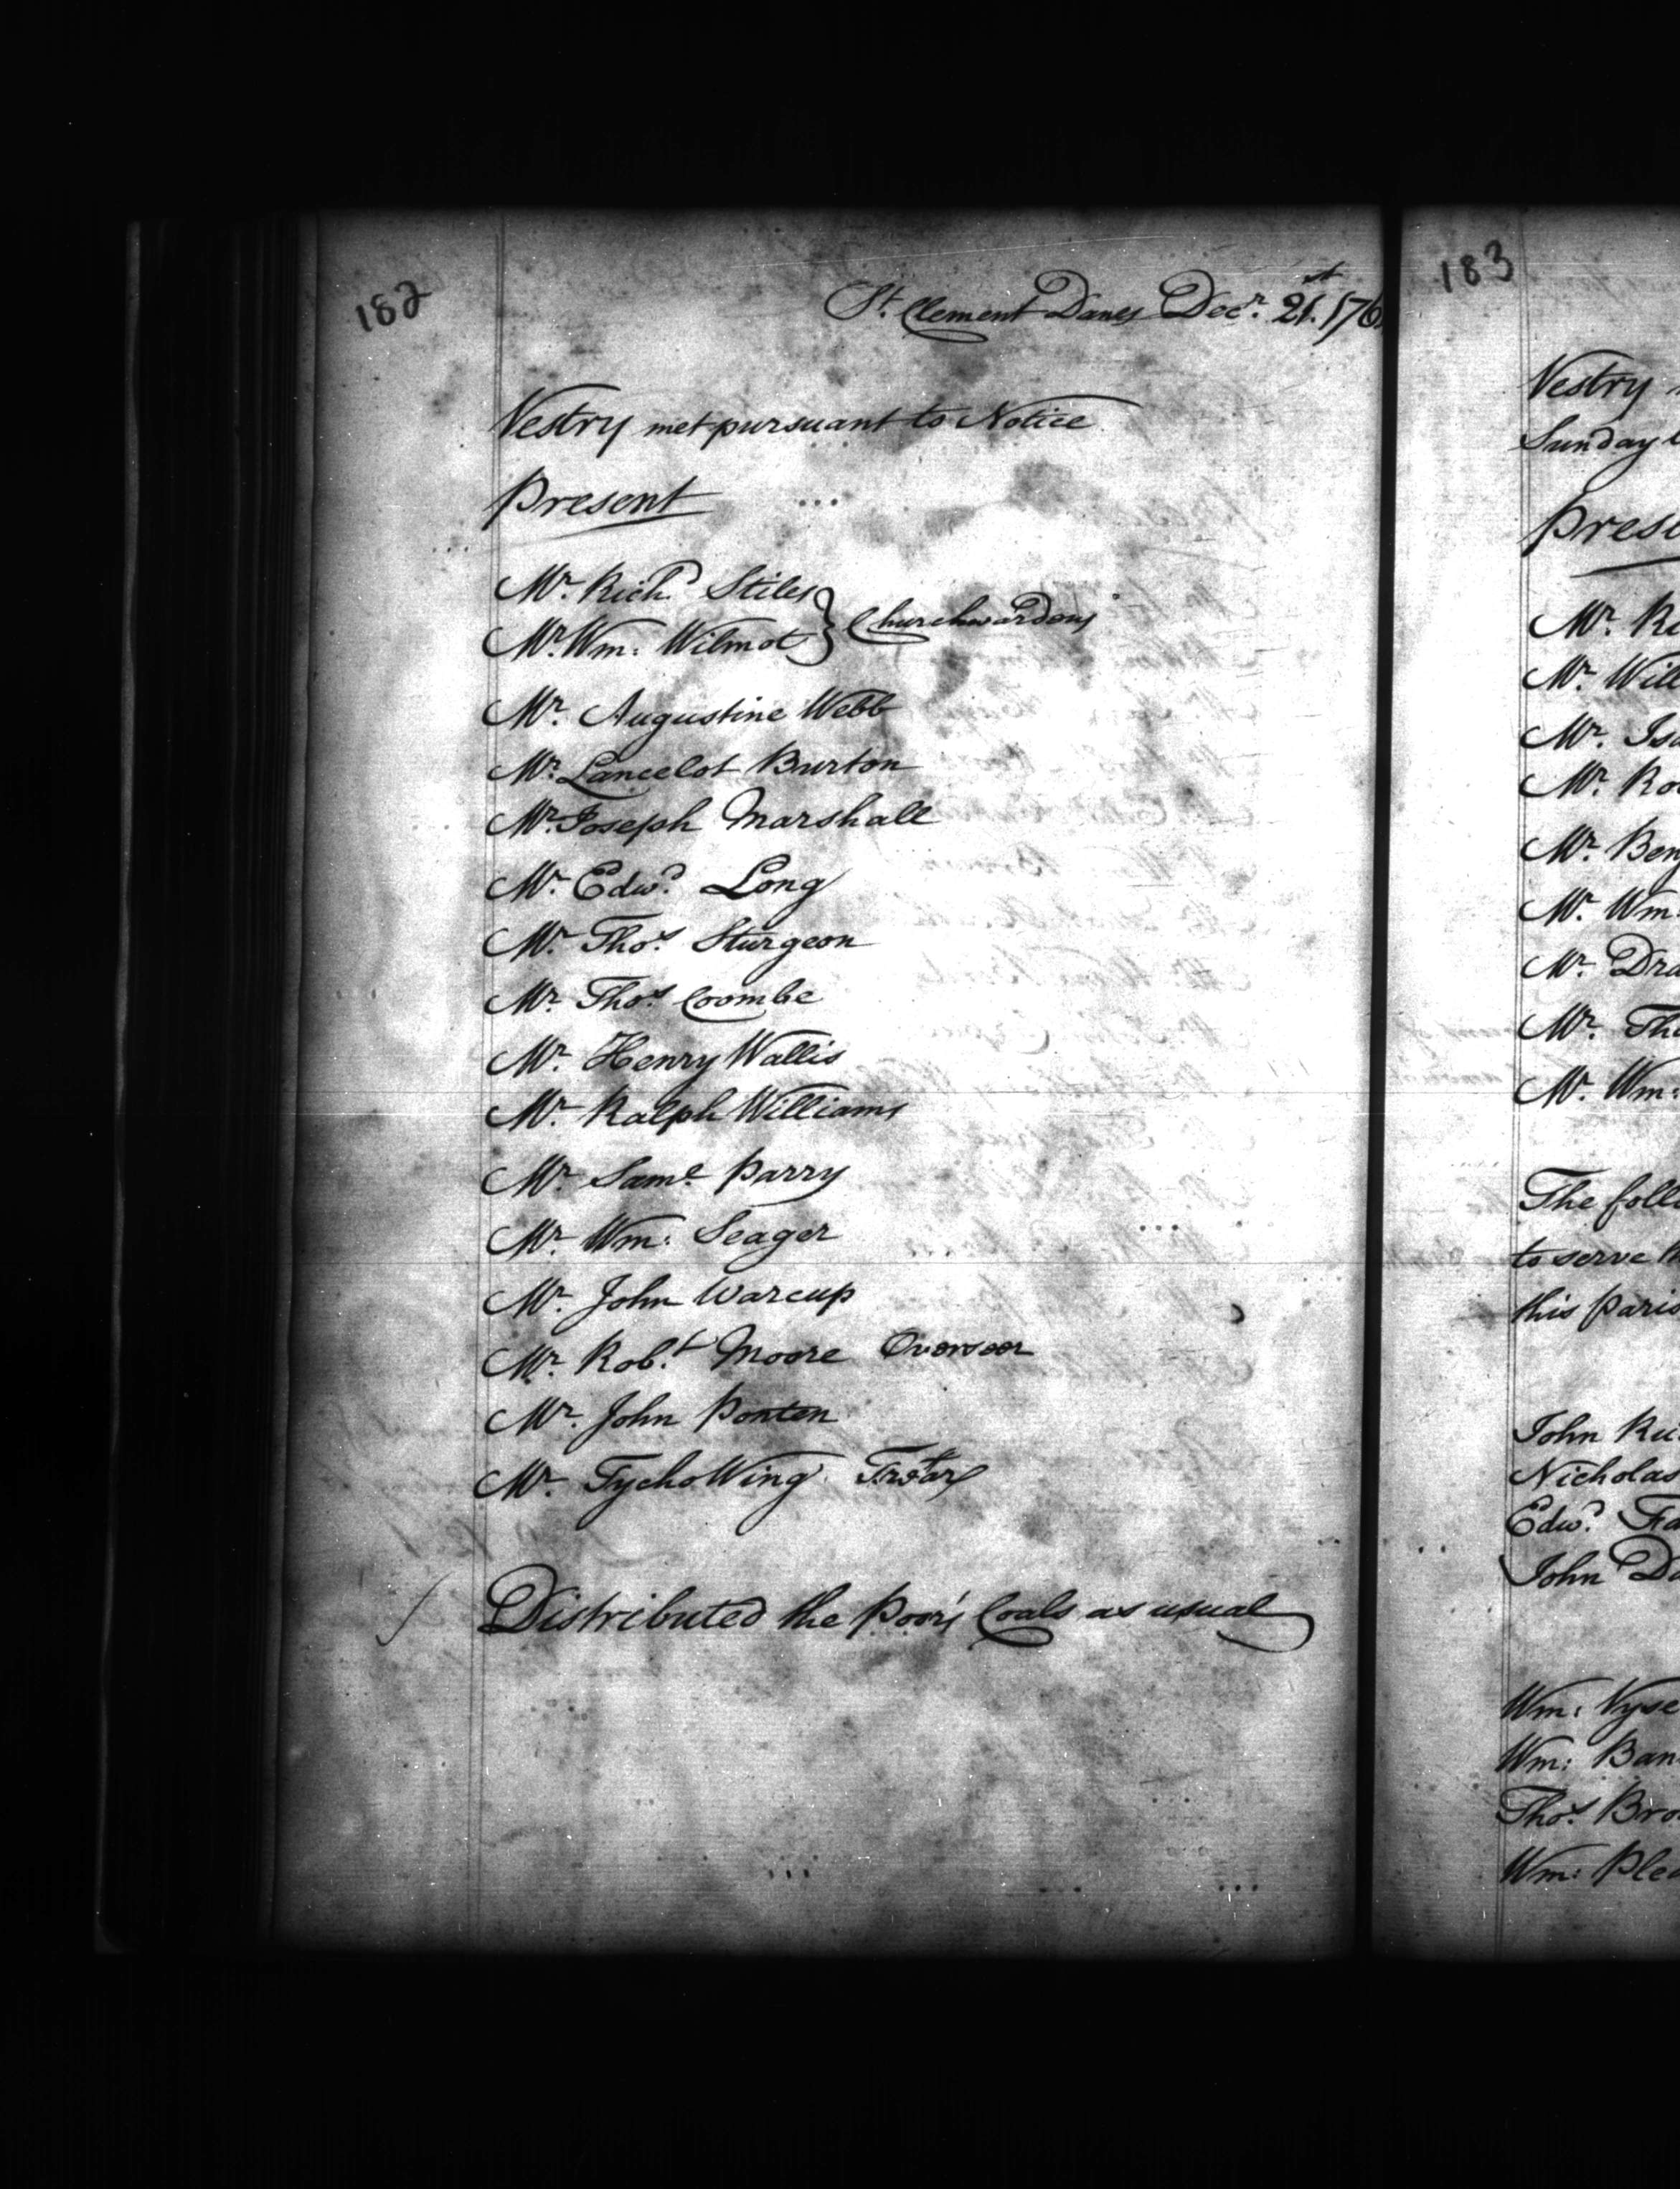 182
St. Clement Danes Decr. 21st. 176
Vestry met pursuant to Notice
Present
Mr. Richd. Stiles
Mr. Wm: Wilmot } Churchwardens
Mr. Augustine Webb
Mr. Lancelot Burton
Mr. Joseph Marshall
Mr. Edwd. Long
Mr. Thos. Sturgeon
Mr. Thos. Coombe
Mr. Henry Wallis
Mr. Ralph Williams
Mr. Saml. Parry
Mr. Wm: Seager
Mr. John Warcup
Mr. Robt. Moore Overseer
Mr. John Ponten
Mr. Tycho Wing
Distributed the Poor's Coals as usual
183
Vestry
Sunday
Prese
Mr. Ri
Mr. Will
Mr. Isa
Mr. Ro
Mr. Ben
Mr. Wm:
Mr. Dra
Mr. Tho
Mr. Wm:
The foll
to serve
this Paris
John Ru
Nicholas
Edwd. Fa
John Da
Wm: Vyse
Wm: Ban
Thos. Bro
Wm: Ple